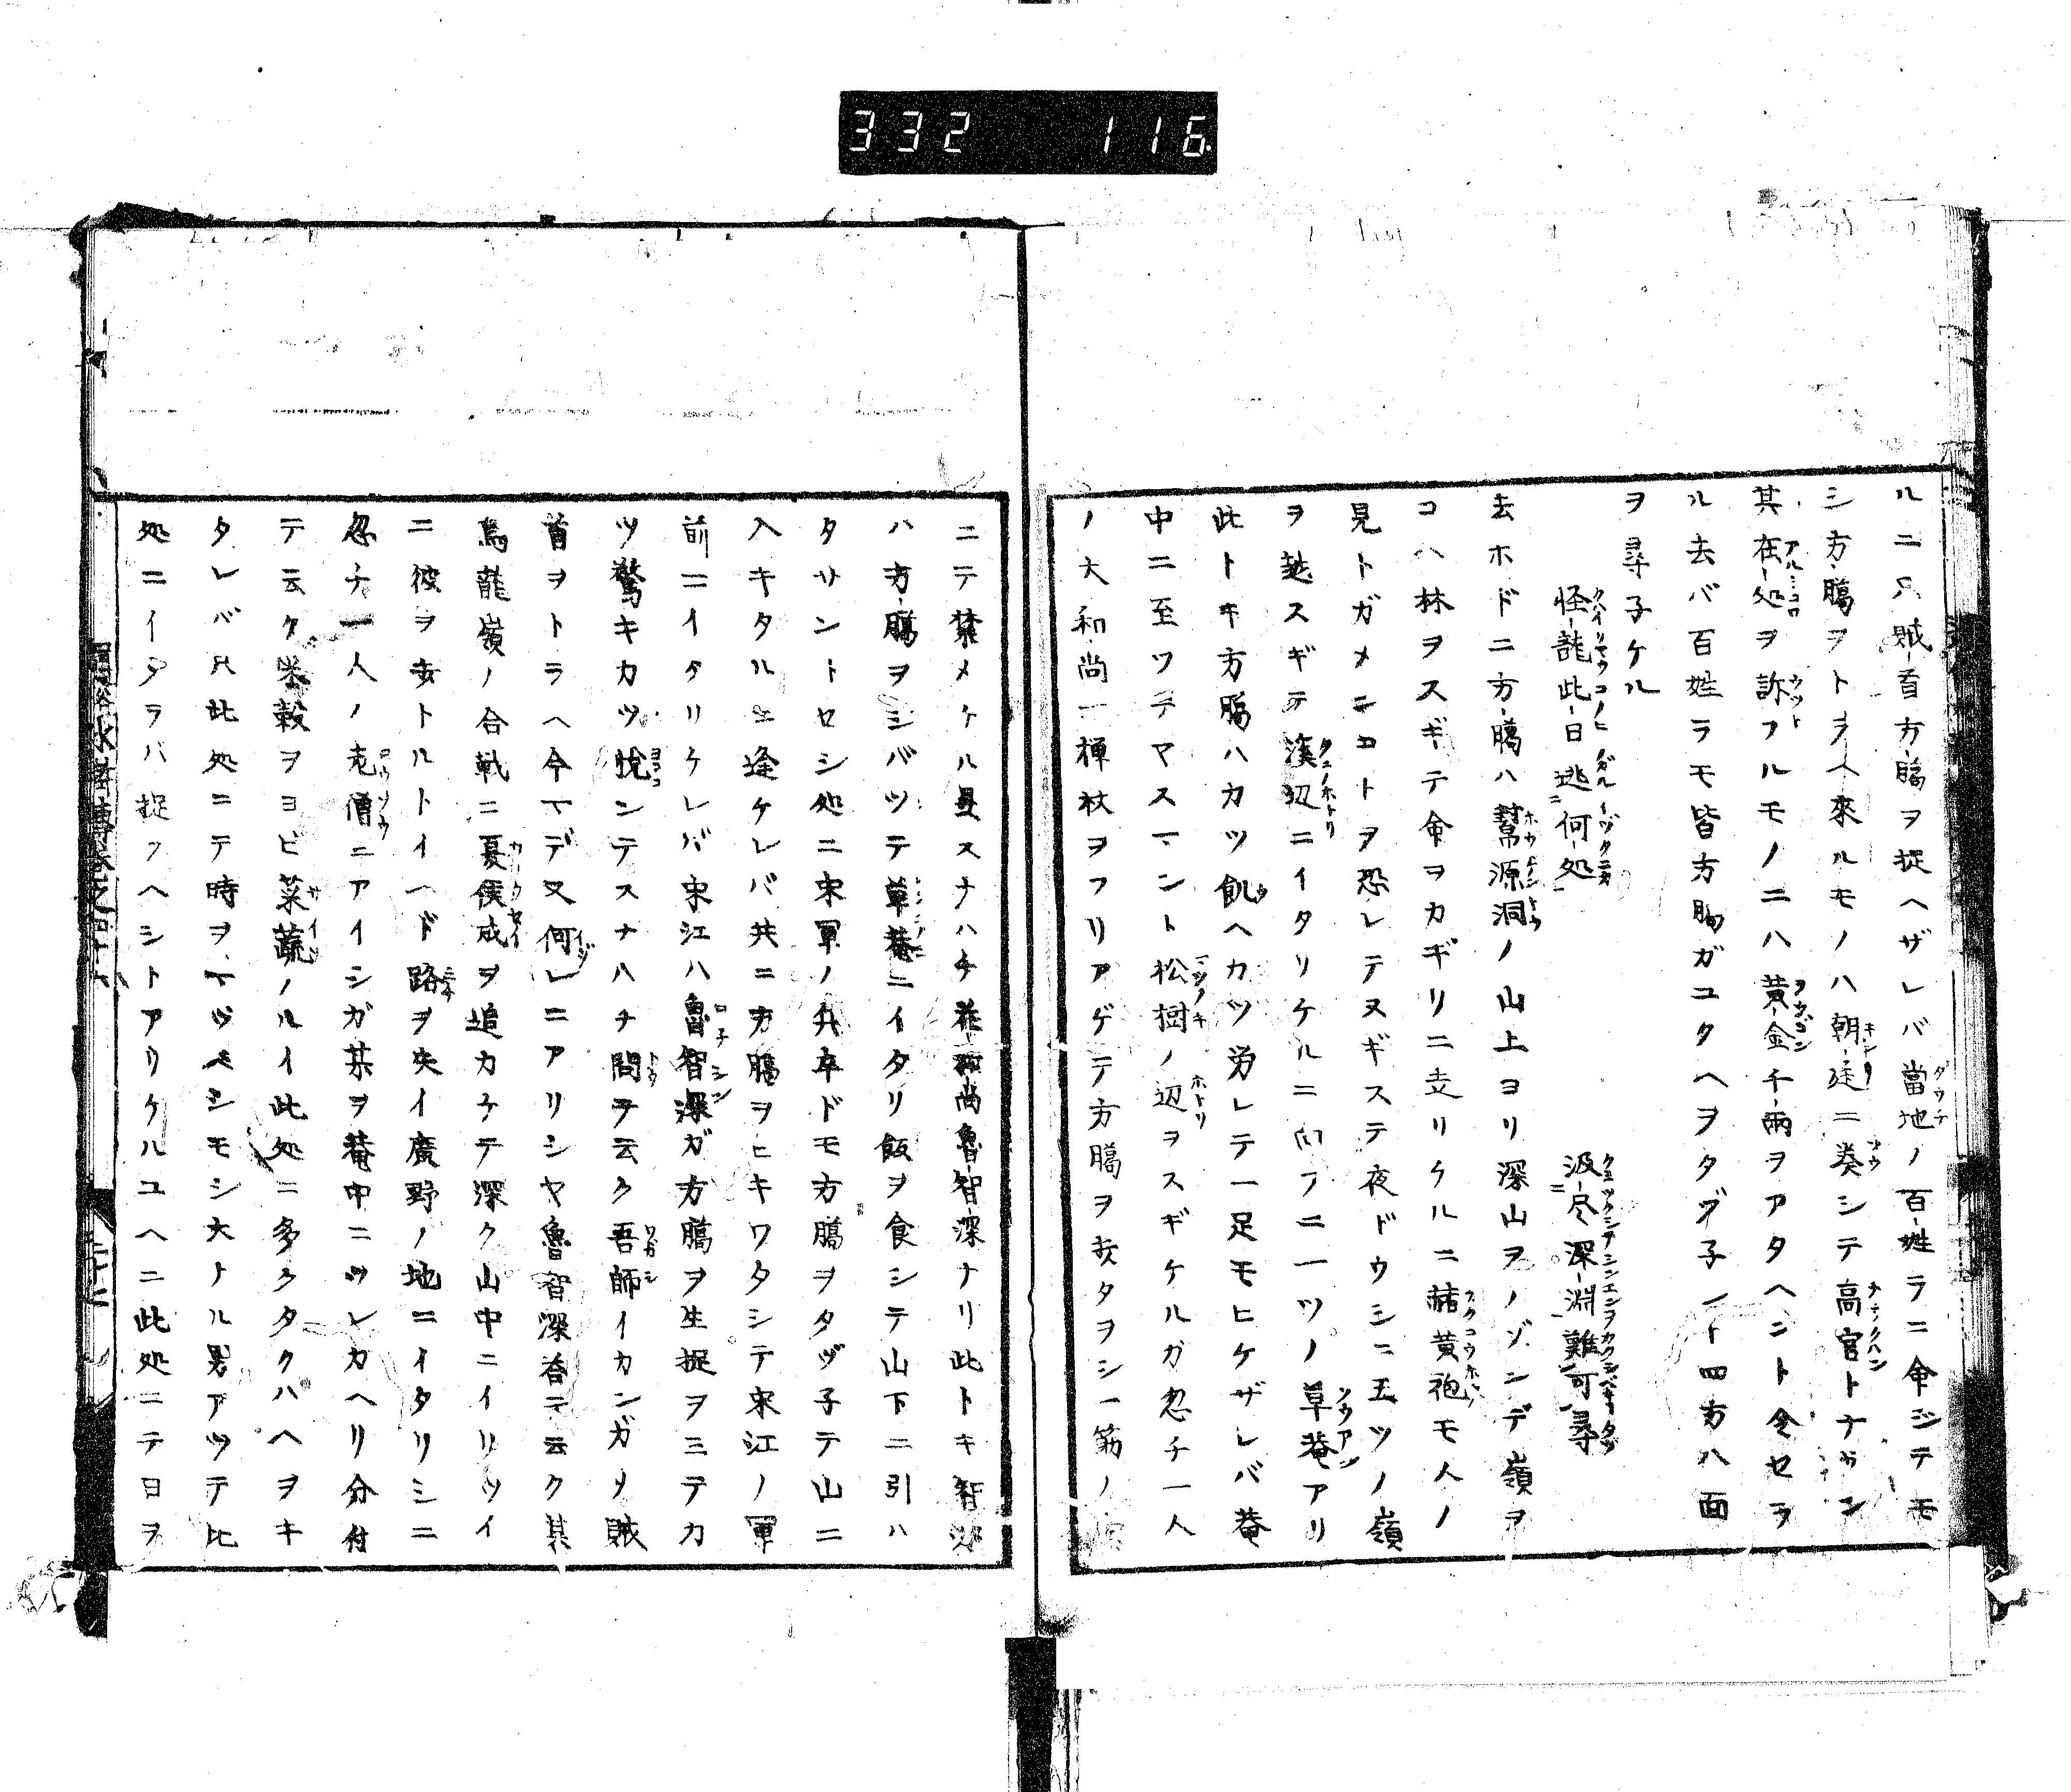 332 116
ルニ只賊首方臈ヲ捉ヘザレバ當地ノ百姓ラニ命ジテモ
シ方臈ヲトラヘ來ルモノハ朝廷ニ奏シテ高官トナサン
其在処ヲ訴フルモノニハ黄金千兩ヲアタヘント令セラ
ル去バ百姓ラモ皆方臈ガユクヘヲタヅ子ント四方八面
ヲ尋子ケル
怪龍此日逃何処 汲尽深淵難可尋
去ホドニ方臈ハ幇源洞ノ山上ヨリ深山ヲノゾンデ嶺ヲ
コヘ林ヲスギテ命ヲカギリニ走リケルニ赭黄袍モ人ノ
見トガメンコトヲ恐レテヌギステ夜ドウシニ五ツノ嶺
ヲ越スギテ溪辺ニイタリケルニ向フニ一ツノ草菴アリ
此トキ方臈ハカツ飢ヘカツ労レテ一足モヒケザレバ菴
中ニ至ツテヤスマント松樹ノ辺ヲスギケルガ忽チ一人
ノ大和尚一禅杖ヲフリアゲテ方臈ヲ打タヲシ一筋ノ
ニテ禁メケル是スナハチ花和尚魯智深ナリ此トキ智深
ハ方臈ヲシバツテ草菴ニイタリ飯ヲ食シテ山下ニ引ハ
タサントセシ処ニ宋軍ノ兵卒ドモ方臈ヲタヅ子テ山ニ
入キタルニ逢ケレバ共ニ方臈ヲヒキワタシテ宋江ノ軍
前ニイタリケレバ宋江ハ魯智深ガ方臈ヲ生捉ヲミテカ
ツ驚キカツ悅ンデスナハチ問テ云ク吾師イカンガソ賊
首ヲトラヘ今マデ又何レニアリシヤ魯智深荅テ云ク某
烏龍嶺ノ合戦ニ夏侯成ヲ追カケテ深ク山中ニイリツイ
ニ彼ヲ幸トルトイヘド路ヲ失イ廣野ノ地ニイタリシニ
忽チ一人ノ老僧ニアイシガ某ヲ菴中ニツレカヘリ分付
テ云ク米穀ヲヨビ菜蔬ノルイ此処ニ多クタクハヘヲキ
タレバ只此処ニテ時ヲマツベシモシ大ナル男アツテ此
処ニイタラバ捉フヘシトアリケルユヘニ此処ニテ日ヲ